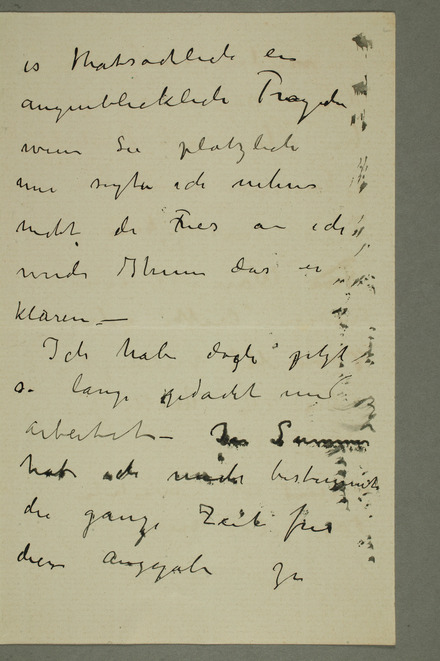 is thatsachlich ein
augenblickliche Tragodie
wenn Sie platzlich
mir sagten ich nehme
nicht die Fries an ich
wurde Ihnen das er
klaren —
Ich habe doch jetzt
so lange gedacht und
arbeitet — Im Summer
hab ich mich bestimmt
die ganze Zeit fur
diese Aufgabe zu